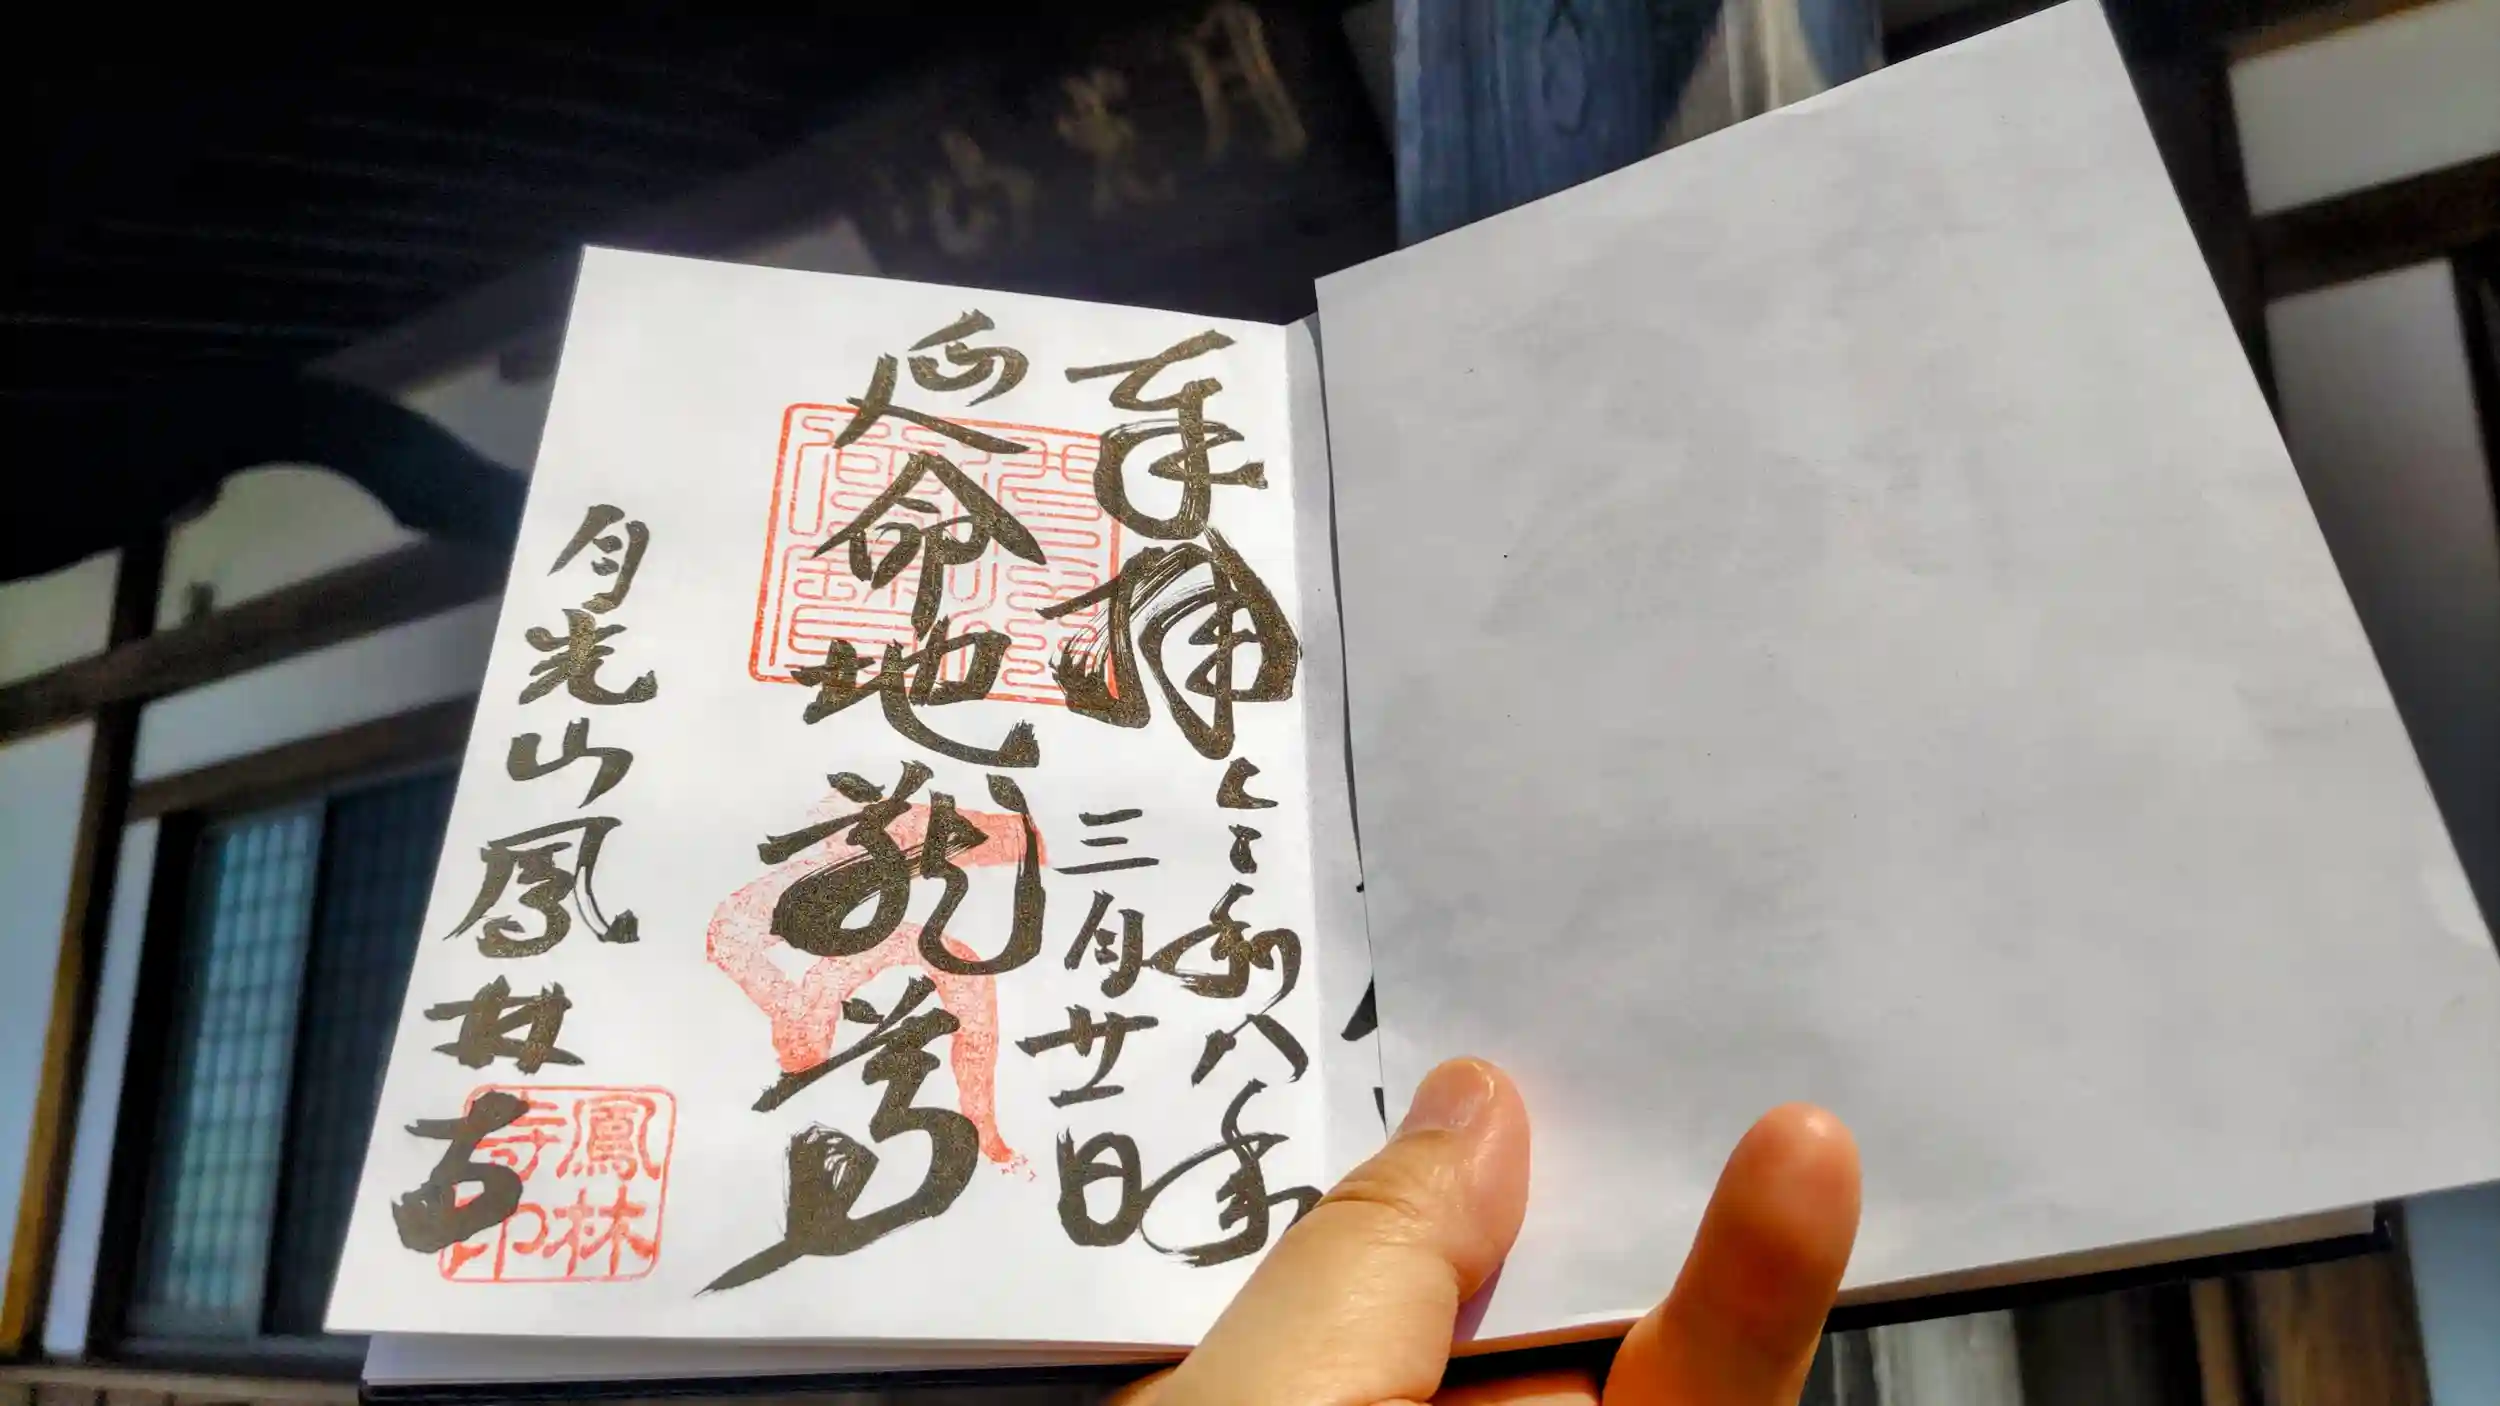 月光山
奉拝
令和八年
三月廿日
延命地蔵尊
月光山鳳林寺
鳳林寺印